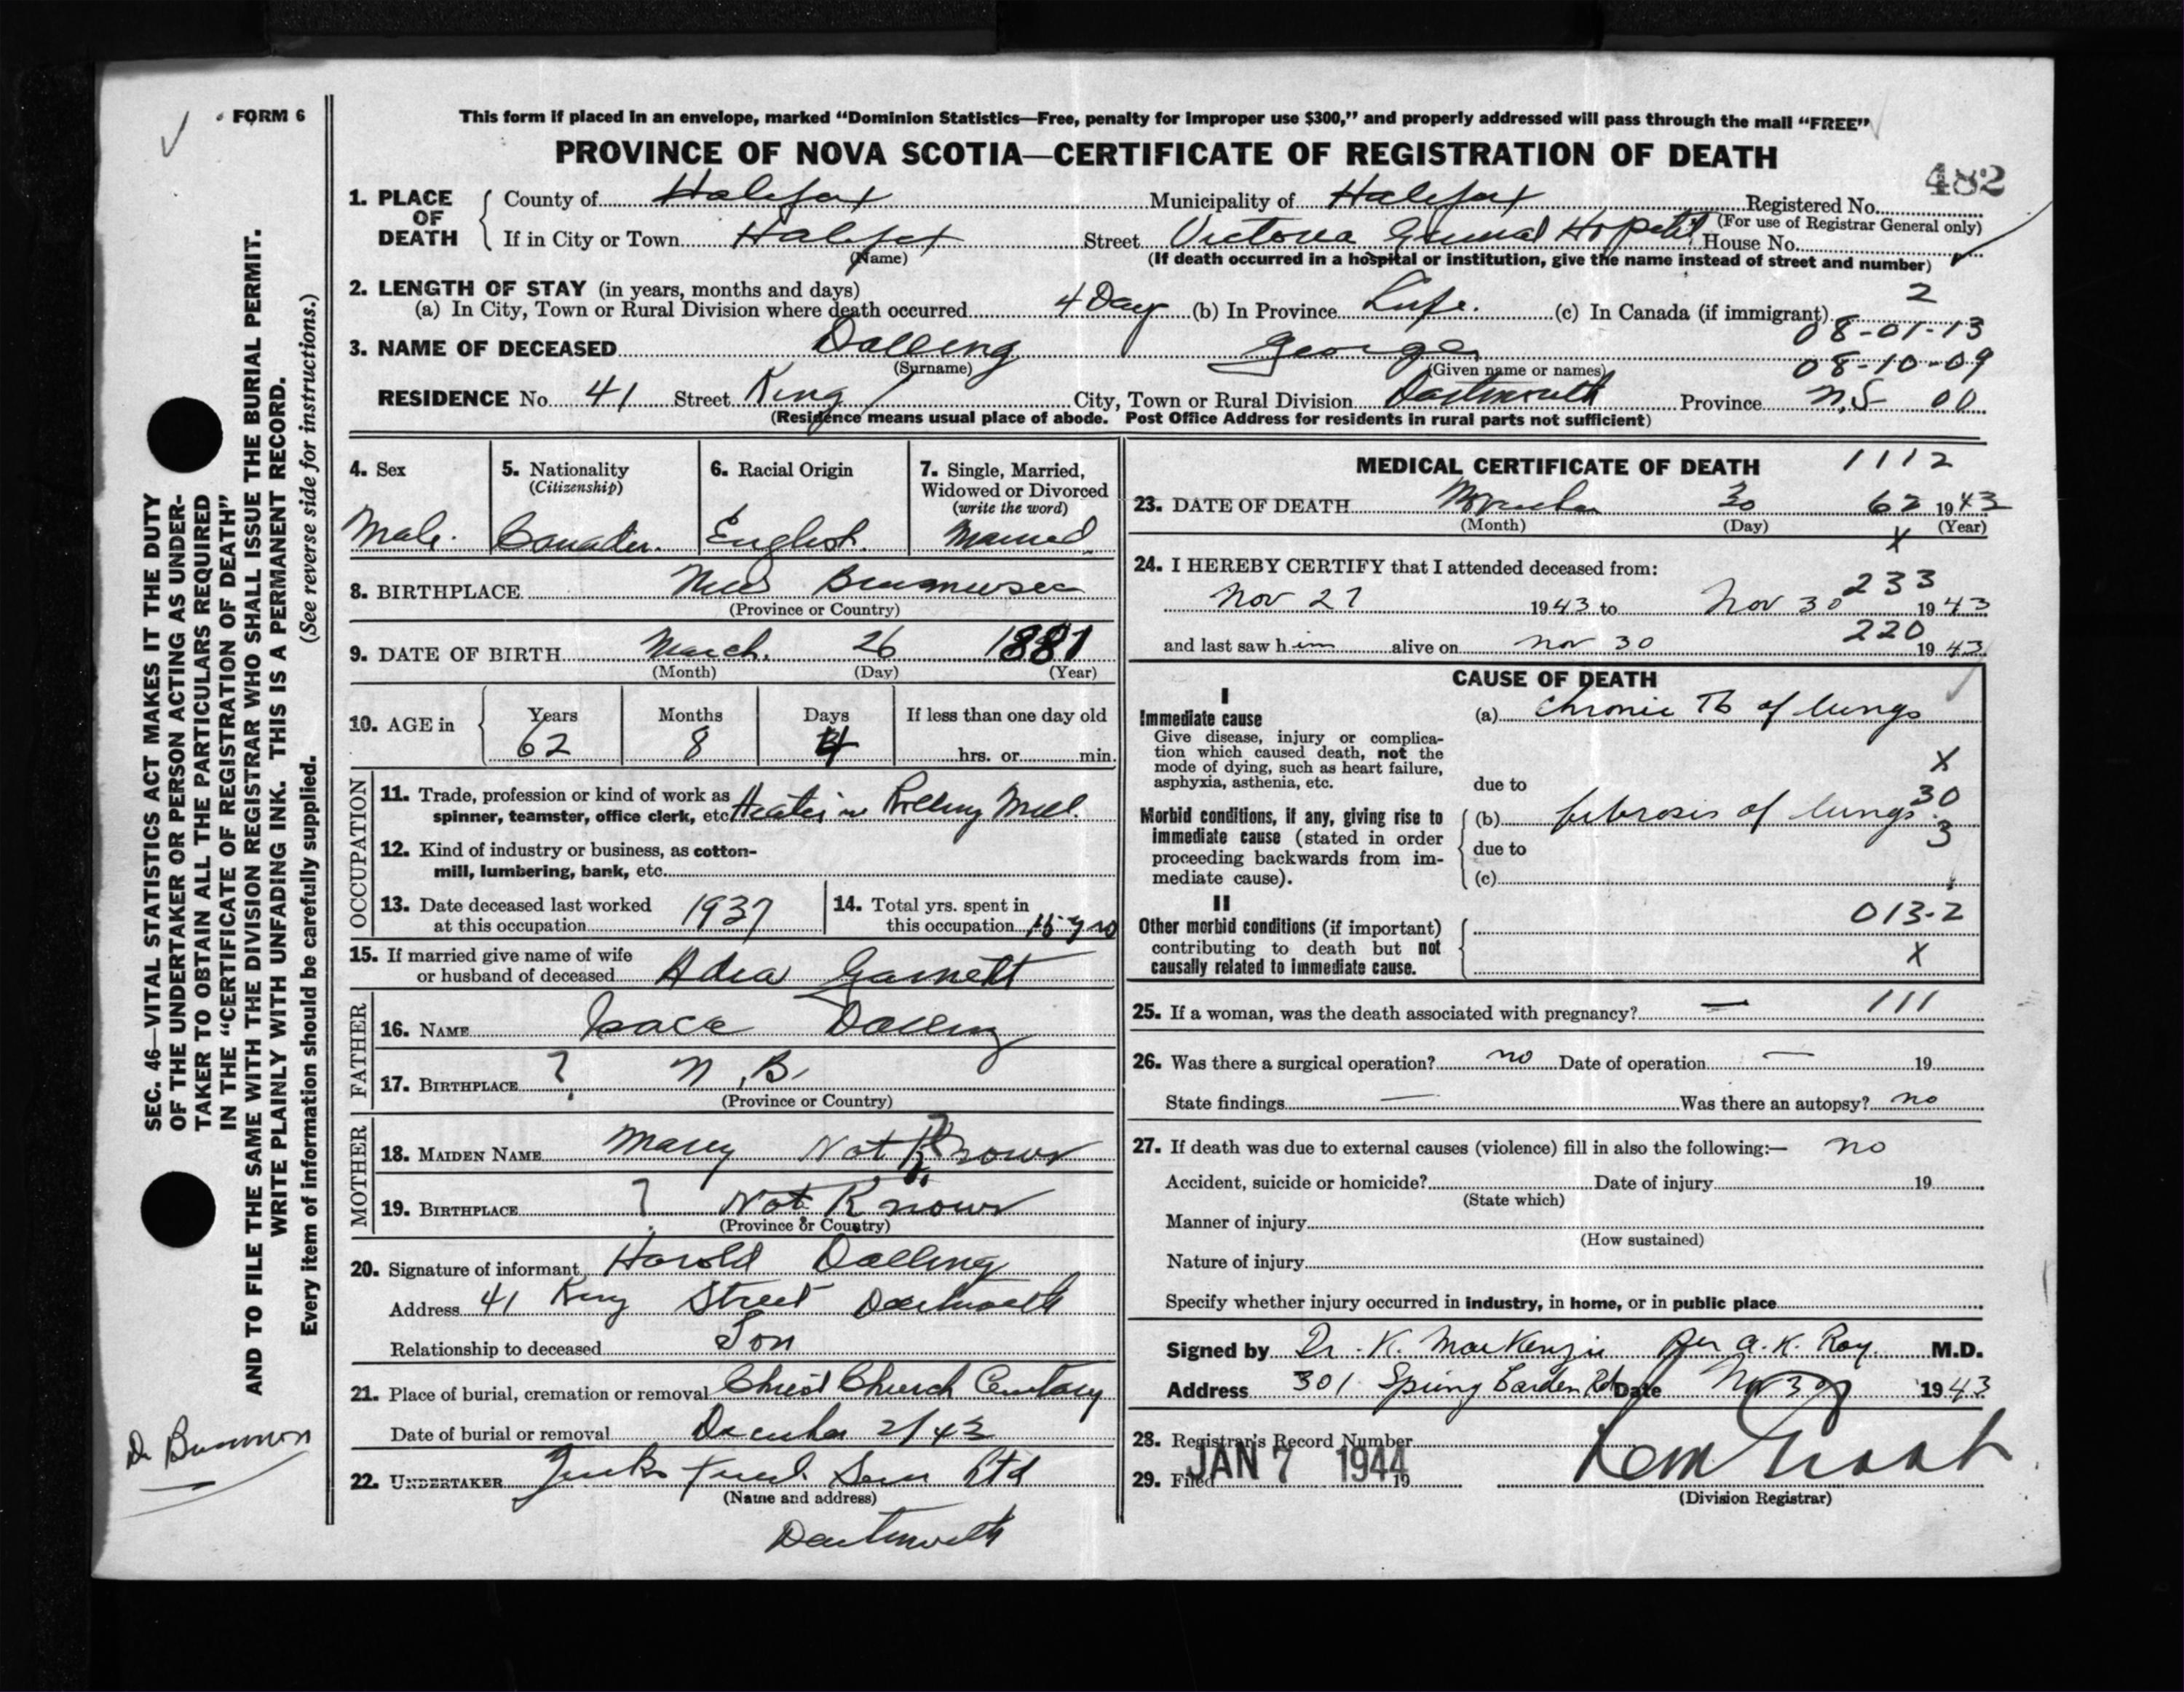 FORM 6
This form if placed in an envelope, marked “Dominion Statistics—Free, penalty for improper use $300,” and properly addressed will pass through the mail “FREE”
PROVINCE OF NOVA SCOTIA—CERTIFICATE OF REGISTRATION OF DEATH
482
1. PLACE OF DEATH
County of Halifax Municipality of Halifax Registered No.
(For use of Registrar General only)
If in City or Town Halifax Street Victoria General Hospital House No.
(Name) (If death occurred in a hospital or institution, give the name instead of street and number)
2. LENGTH OF STAY (in years, months and days)
(a) In City, Town or Rural Division where death occurred 4 Day (b) In Province Life. (c) In Canada (if immigrant) 2
08-01-13
3. NAME OF DECEASED Dalling George
(Surname) (Given name or names)
08-10-09
RESIDENCE No. 41 Street King City, Town or Rural Division Dartmouth Province N.S 00
(Residence means usual place of abode. Post Office Address for residents in rural parts not sufficient)
4. Sex
Male.
5. Nationality
(Citizenship)
6. Racial Origin
English.
7. Single, Married,
Widowed or Divorced
(write the word)
Married
8. BIRTHPLACE New Brunswick
(Province or Country)
9. DATE OF BIRTH March. 26 1881
(Month) (Day) (Year)
10. AGE in
Years Months Days If less than one day old
62 8 4 hrs. or min.
OCCUPATION
11. Trade, profession or kind of work as
spinner, teamster, office clerk, etc. Heater in Rolling Mill.
12. Kind of industry or business, as cotton-
mill, lumbering, bank, etc.
13. Date deceased last worked
at this occupation 1937
14. Total yrs. spent in
this occupation 15 yrs
15. If married give name of wife
or husband of deceased Garnett
FATHER
16. NAME Isaac Dalling
17. BIRTHPLACE ? N.B.
(Province or Country)
MOTHER
18. MAIDEN NAME Mary Not Known
19. BIRTHPLACE ? Not Known
(Province or Country)
20. Signature of informant Harold Dalling
Address 41 King Street Dartmouth
Relationship to deceased Son
21. Place of burial, cremation or removal Christ Church Cemetary
Date of burial or removal December 2/43
22. UNDERTAKER Ltd
(Name and address)
Dartmouth
MEDICAL CERTIFICATE OF DEATH 1112
23. DATE OF DEATH November 30 62 1943
(Month) (Day) (Year)
X
24. I HEREBY CERTIFY that I attended deceased from:
233
Nov 27 1943 to Nov 30 1943
220
and last saw him alive on Nov 30 1943
CAUSE OF DEATH
I
Immediate cause
Give disease, injury or complica-
tion which caused death, not the
mode of dying, such as heart failure,
asphyxia, asthenia, etc.
(a) Chronic Tb of lungs
X
due to
30
Morbid conditions, if any, giving rise to
immediate cause (stated in order
proceeding backwards from im-
mediate cause).
(b) fibrosis of lungs.
3
due to
(c)
II
Other morbid conditions (if important)
contributing to death but not
causally related to immediate cause.
013-2
X
25. If a woman, was the death associated with pregnancy? — 111
26. Was there a surgical operation? no Date of operation — 19
State findings — Was there an autopsy? no
27. If death was due to external causes (violence) fill in also the following:— no
Accident, suicide or homicide? Date of injury 19
(State which)
Manner of injury
(How sustained)
Nature of injury
Specify whether injury occurred in industry, in home, or in public place
Signed by Dr. K. MacKenzie per A. K. Roy. M.D.
Address 301 Spring Garden Rd Date Nov 30 1943
28. Registrar's Record Number
29. Filed JAN 7 1944 19
(Division Registrar)
SEC. 46—VITAL STATISTICS ACT MAKES IT THE DUTY
OF THE UNDERTAKER OR PERSON ACTING AS UNDER-
TAKER TO OBTAIN ALL THE PARTICULARS REQUIRED
IN THE “CERTIFICATE OF REGISTRATION OF DEATH”
AND TO FILE THE SAME WITH THE DIVISION REGISTRAR WHO SHALL ISSUE THE BURIAL PERMIT.
WRITE PLAINLY WITH UNFADING INK. THIS IS A PERMANENT RECORD.
Every item of information should be carefully supplied. (See reverse side for instructions.)